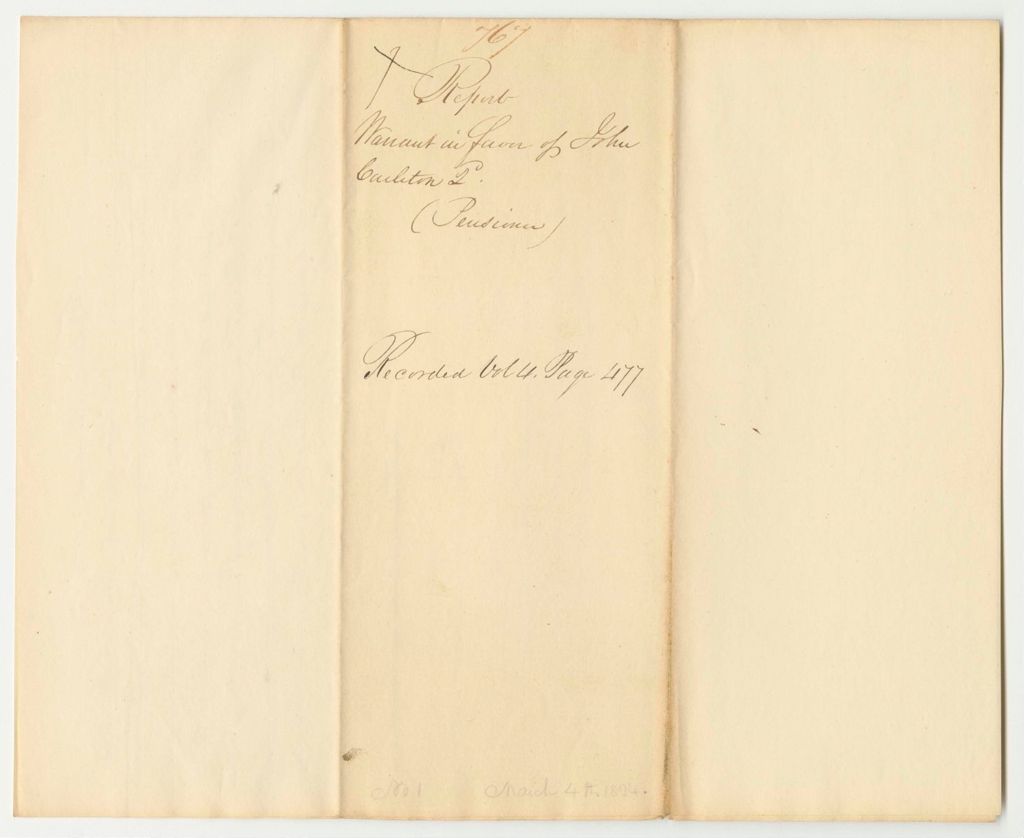 767
Report
Warrant in favor of John
Carleton 2d.
(Pensioner)
Recorded Vol 4. Page 477
No 1 March 4th.